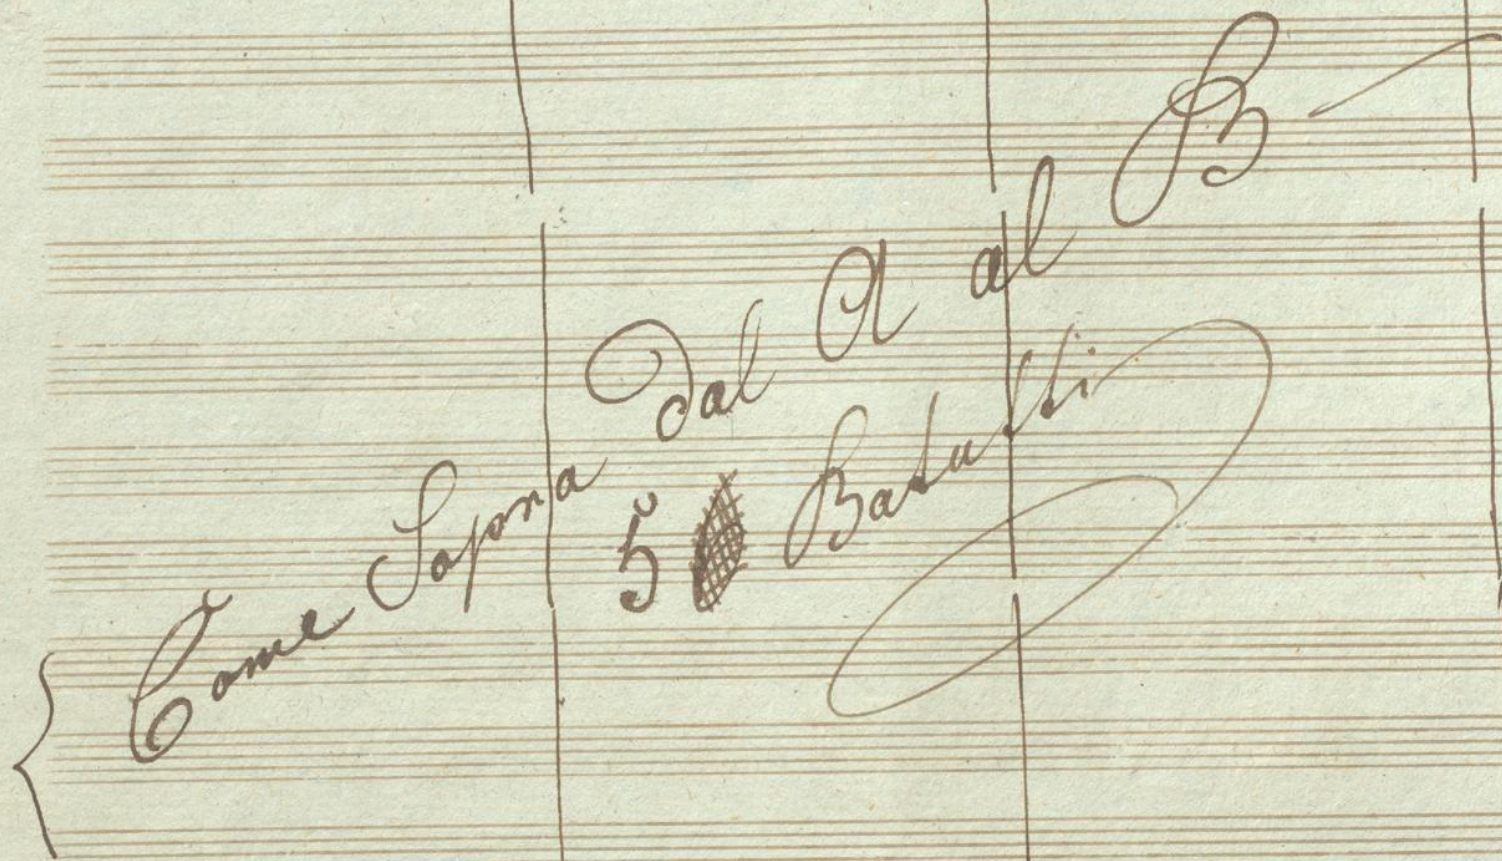 Come Sopra dal A al B
5 Batutti